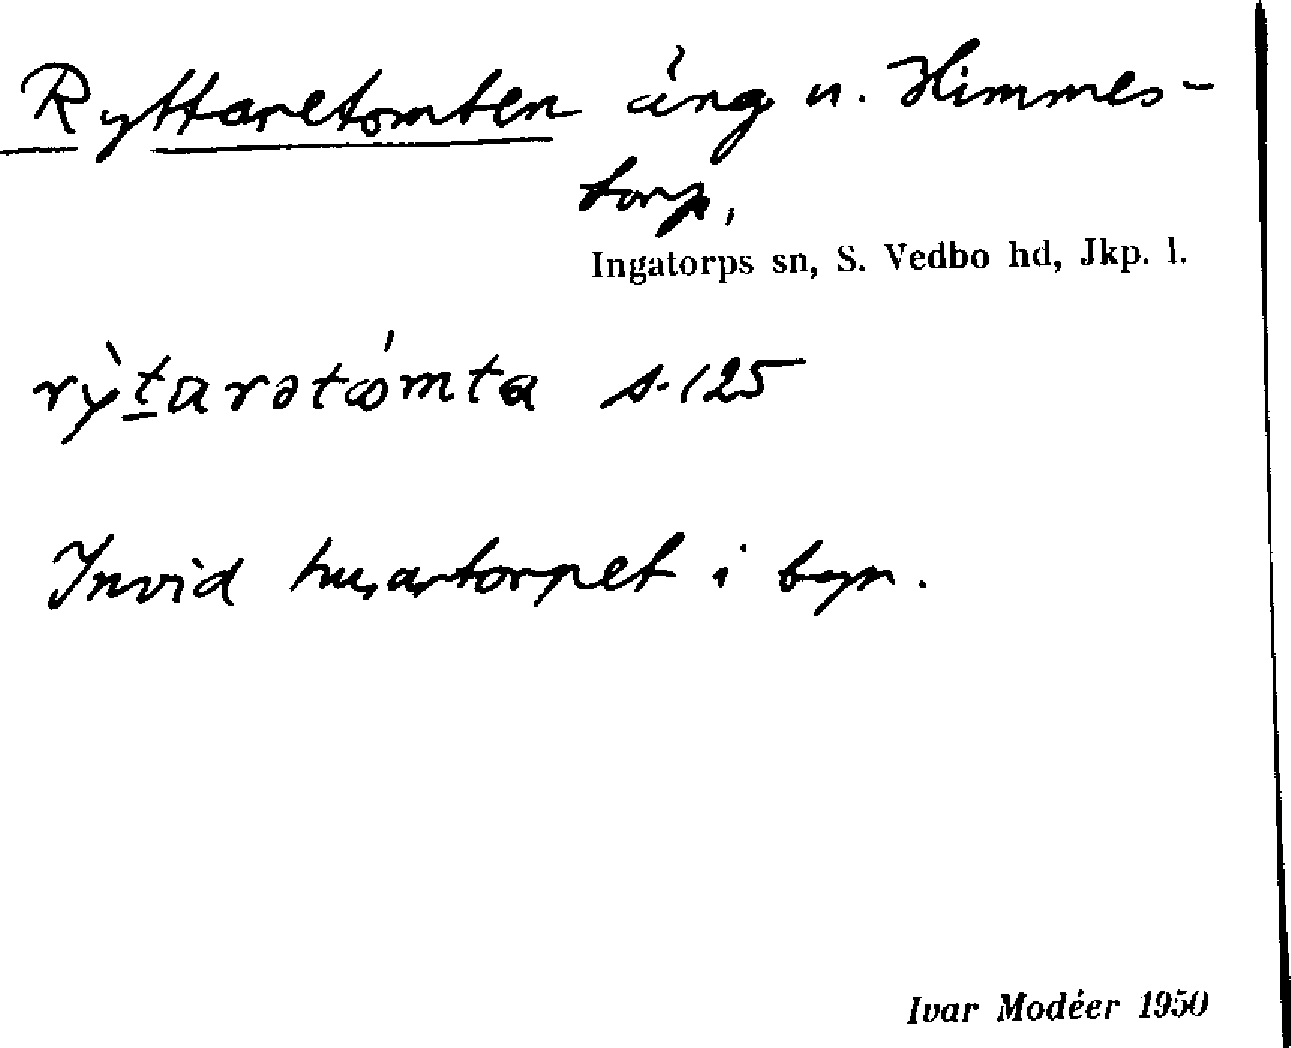 Ryttaretomten äng u. Himmes-
torp,
Ingatorps sn, S. Vedbo hd, Jkp. l.
rỳt̲arətómta s. 125
Invid husartorpet i byn.
Ivar Modéer 1950